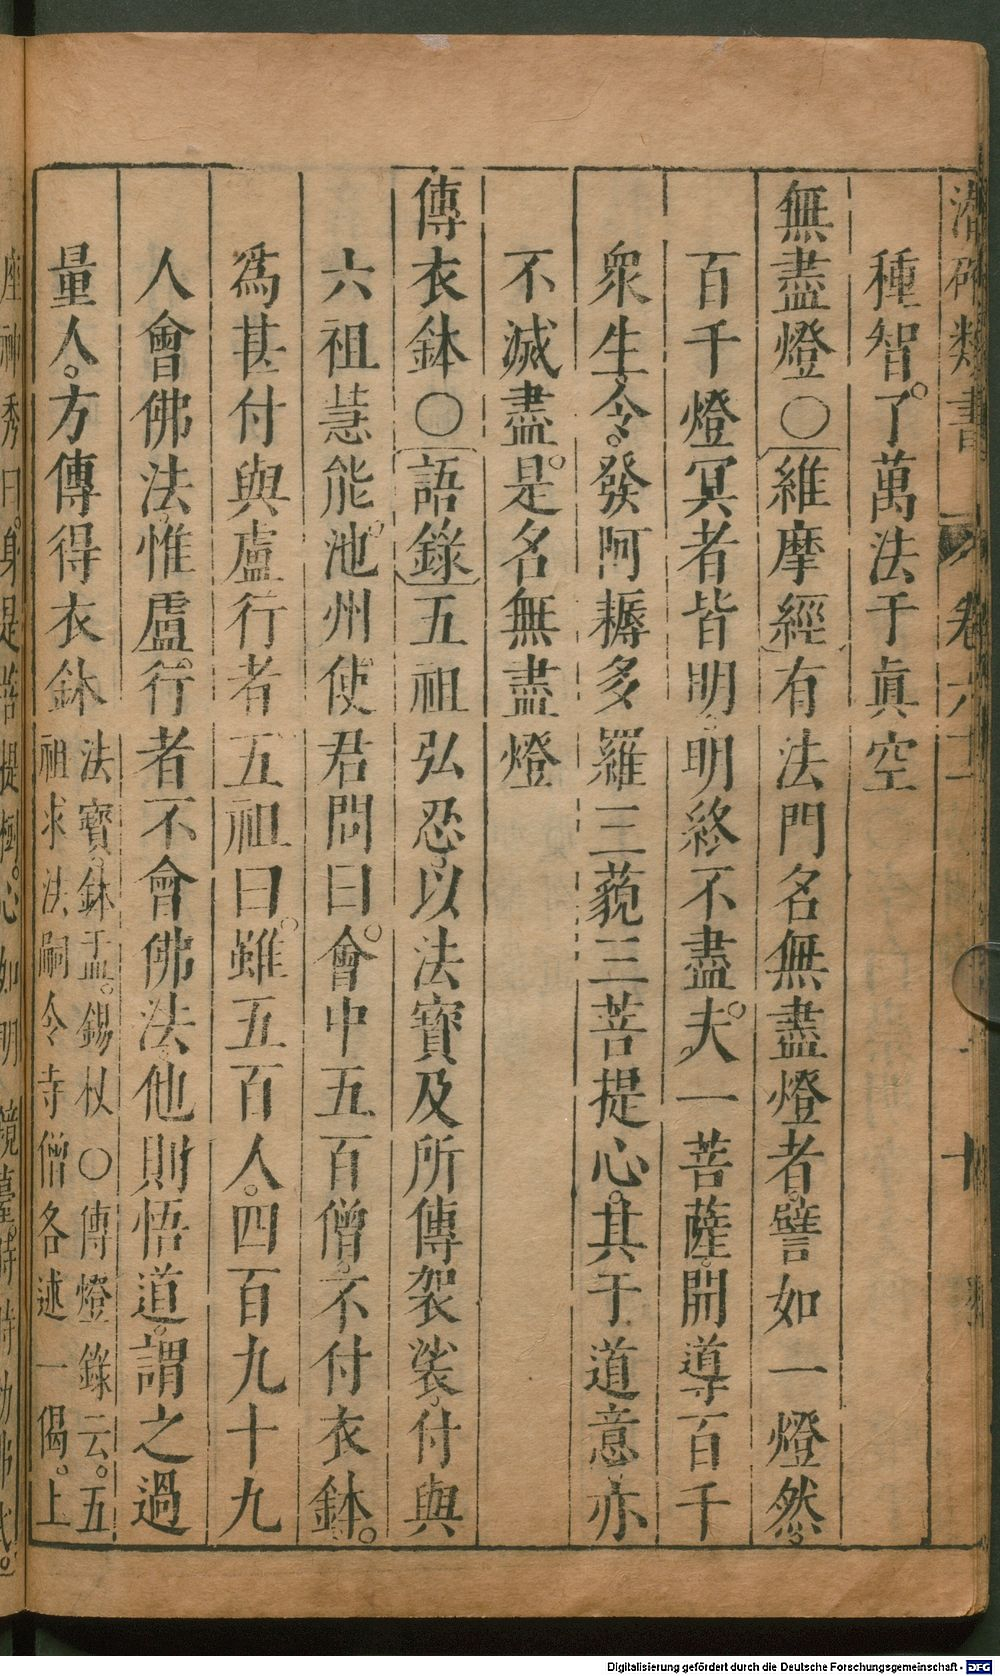 潛確類書 卷六十一 十
種智。了萬法于真空
無盡燈〇維摩經有法門名無盡燈者。譬如一燈然。
百千燈冥者皆明。明終不盡。夫一菩薩。開導百千
衆生。令發阿耨多羅三藐三菩提心。其于道意亦
不滅盡。是名無盡燈
傳衣鉢〇語錄五祖弘忍。以法寶及所傳袈裟。付與
六祖慧能。池州使君問曰。會中五百僧。不付衣鉢。
爲甚付與盧行者五祖曰。雖五百人。四百九十九
人會佛法。惟盧行者不會佛法。他則悟道。謂之過
量人。方傳得衣鉢
法寶。鉢盂。錫杖〇傳燈錄云。五
祖求法嗣令寺僧各述一偈。上
座神秀曰。身是菩提樹。心如明鏡臺。時時勤拂拭。
Digitalisierung gefördert durch die Deutsche Forschungsgemeinschaft - DFG